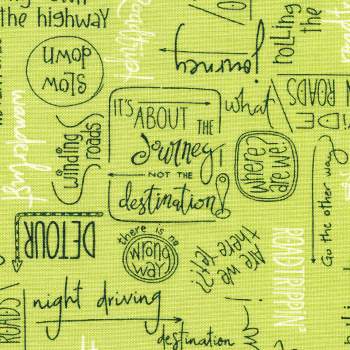 the highway
Roadtrip!
rolling
the
slow
down
journey
wanderlust
IT'S ABOUT THE
Journey!
NOT THE
destination!
what
ROADS
winding
roads
where?
are we!
Go the other way
DETOUR
there is no
wrong
way
Are we
there yet??
ROADTRIPPIN'
night driving
ROADS
destination